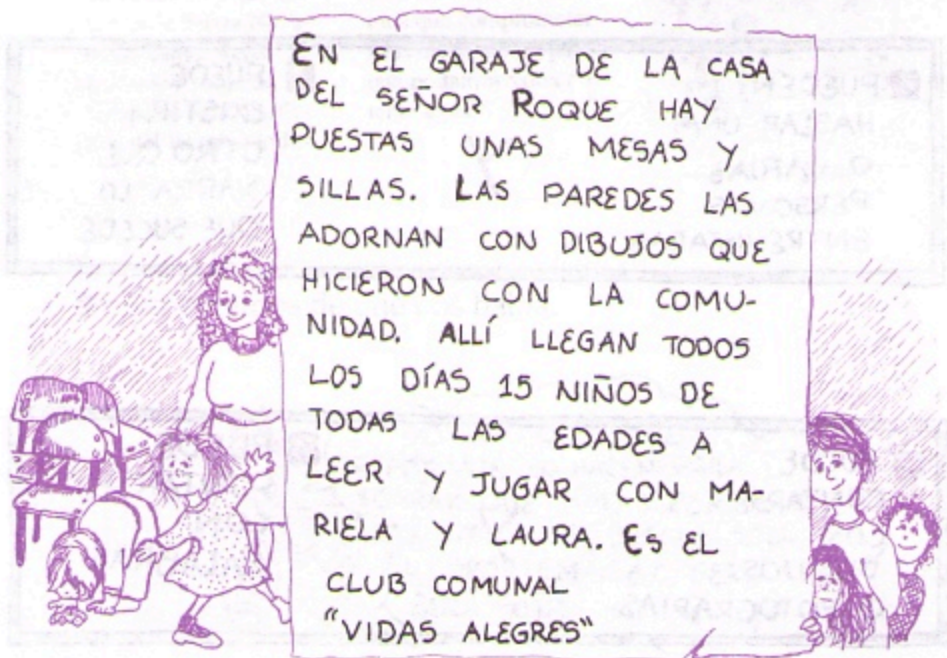 EN EL GARAJE DE LA CASA
DEL SEÑOR ROQUE HAY
PUESTAS UNAS MESAS Y
SILLAS. LAS PAREDES LAS
ADORNAN CON DIBUJOS QUE
HICIERON CON LA COMU-
NIDAD. ALLÍ LLEGAN TODOS
LOS DÍAS 15 NIÑOS DE
TODAS LAS EDADES A
LEER Y JUGAR CON MA-
RIELA Y LAURA. ES EL
CLUB COMUNAL
"VIDAS ALEGRES"